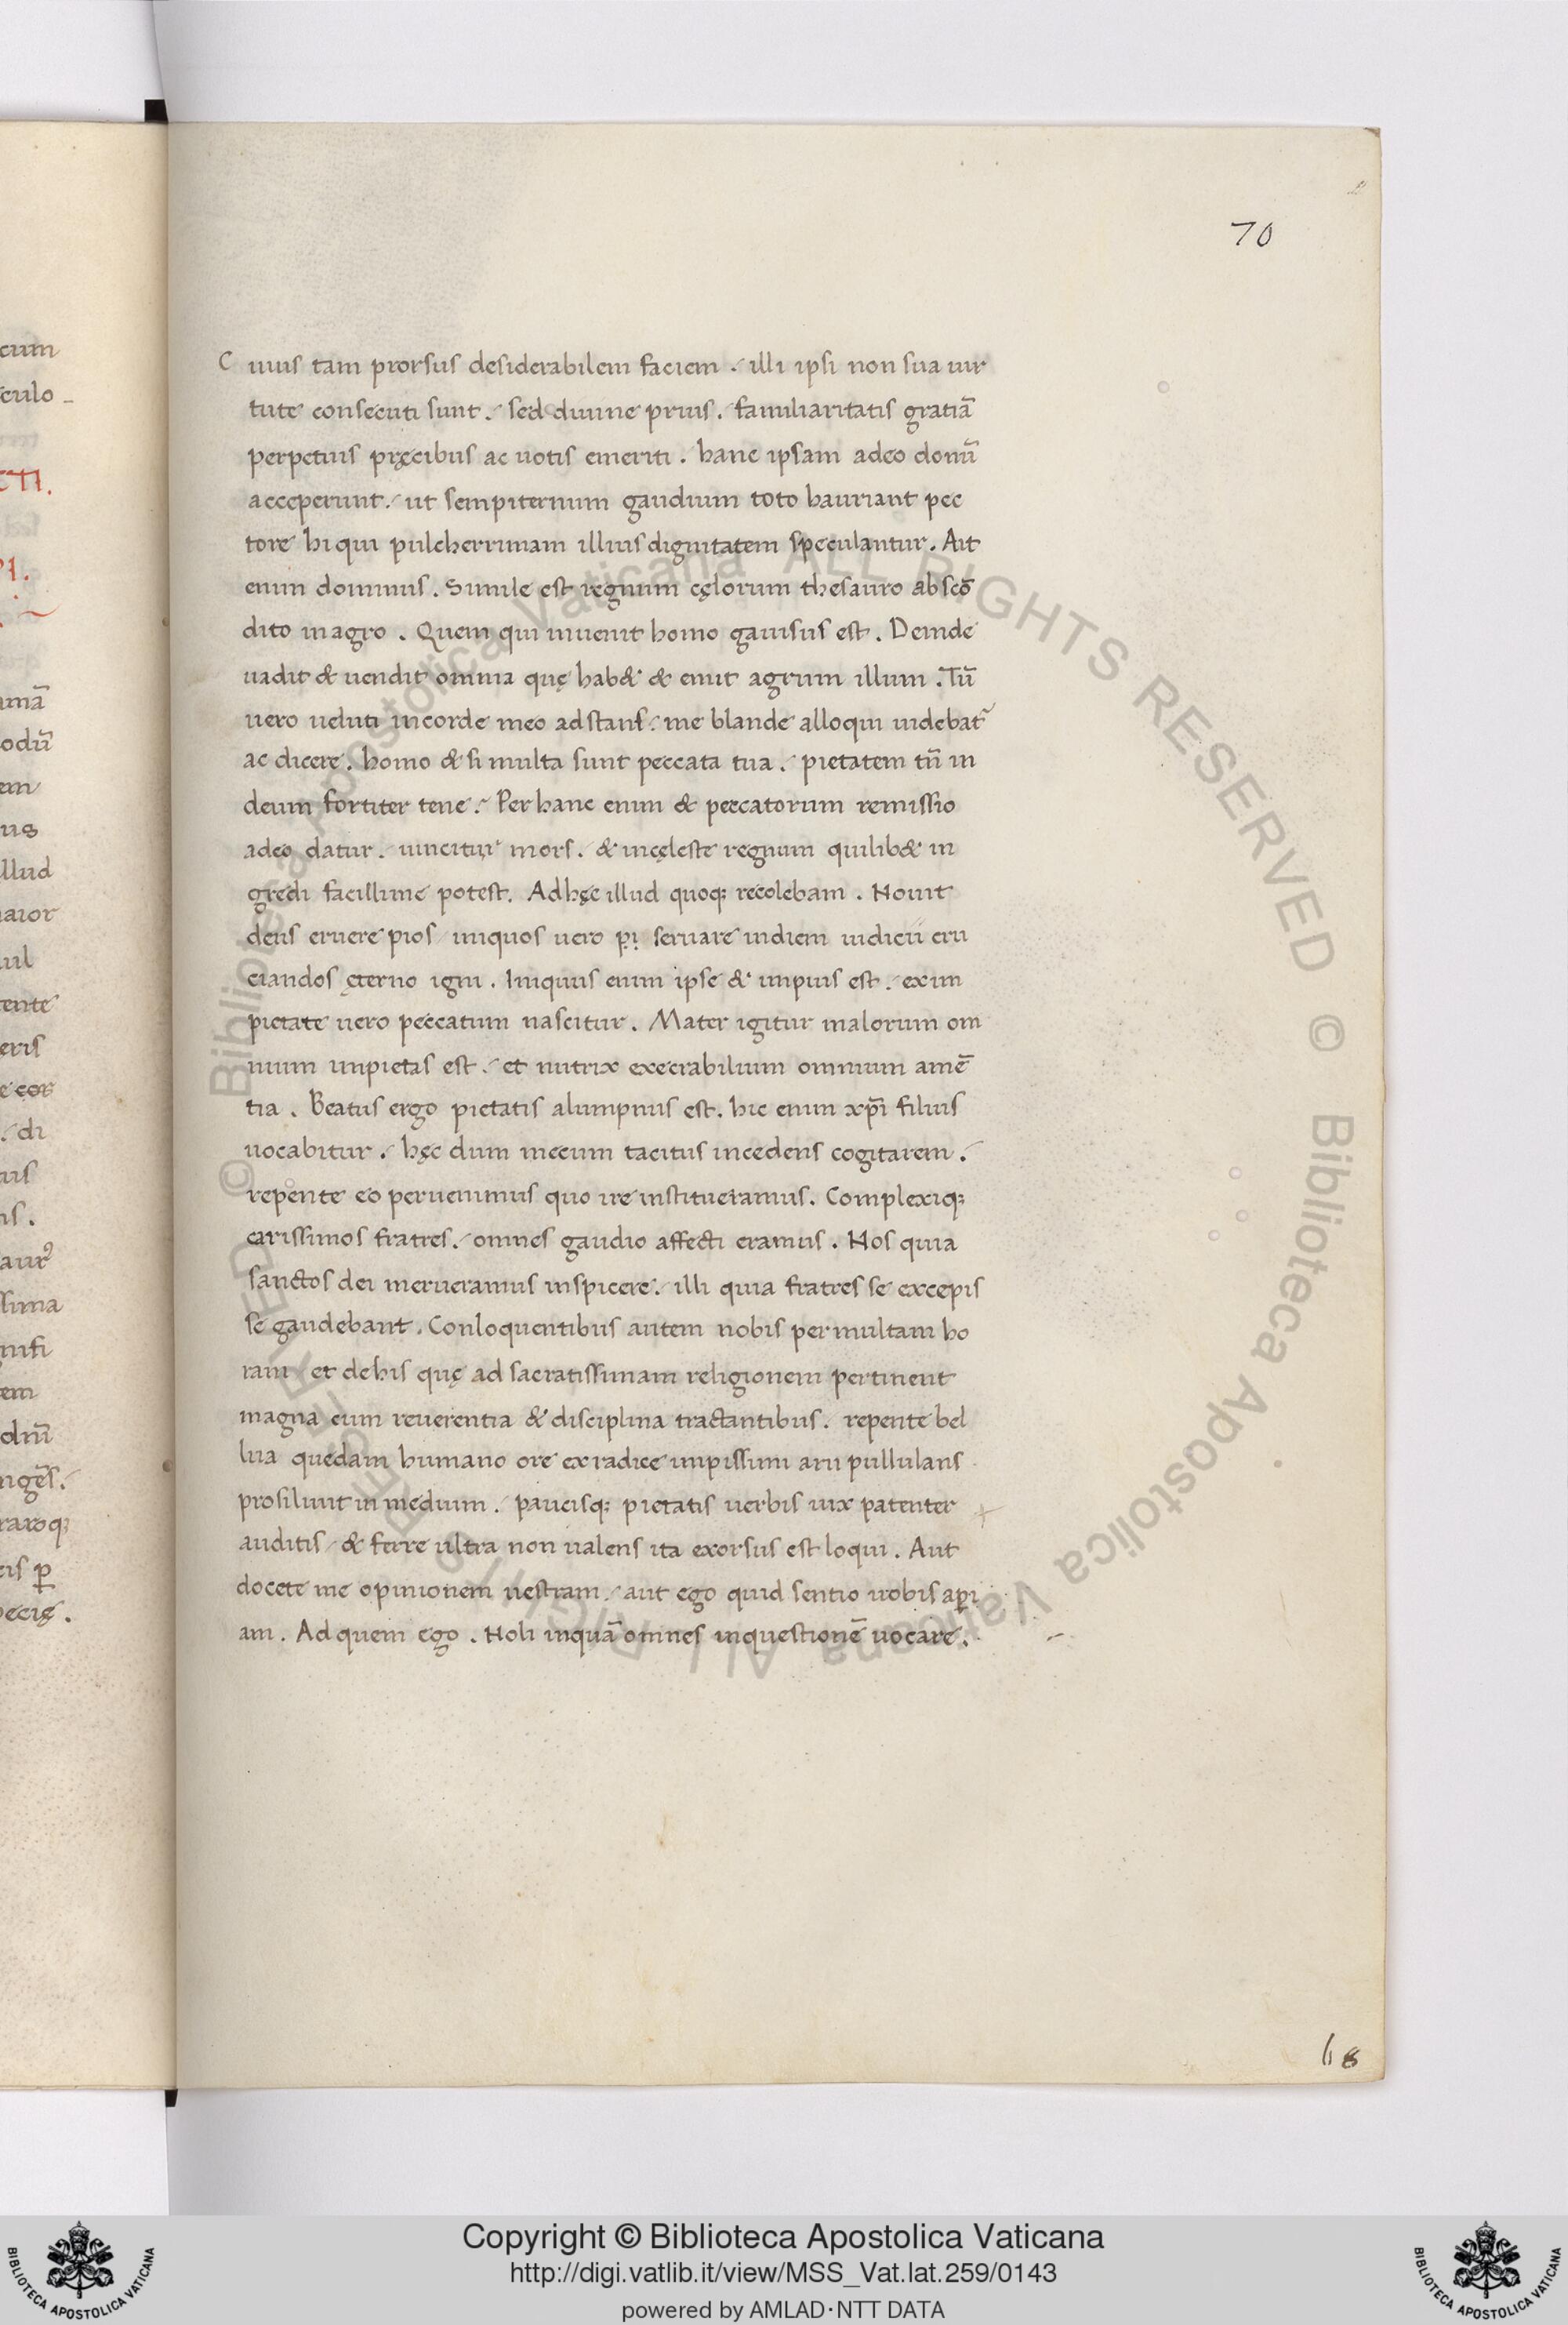 cum
culo
CTI.
PI.
amā
odū
em
us
illud
maior
uil
tente
eris
e eos
. di
tus
is.
aur
ssima
gnifi
tem
dnī
nges.
raroq;
eis p
pecię.
70
Cuius tam prorsus desiderabilem faciem. illi ipsi non sua uir
tute consecuti sunt. sed diuine prius. familiaritatis gratiā
perpetuis pręcibus ac uotis emeriti. hanc ipsam adeo donū
acceperunt. ut sempiternum gaudium toto hauriant pec
tore hi qui pulcherrimam illius dignitatem speculantur. Ait
enim dominus. Simile est regnum cęlorum thesauro abscō
dito in agro. Quem qui inuenit homo gauisus est. Deinde
uadit & uendit omnia quę hab& & emit agrum illum. Tū
uero ueluti in corde meo adstans. me blande alloqui uidebat̄
ac dicere. homo & si multa sunt peccata tua. pietatem tn̄ in
deum fortiter tene. Per hanc enim & peccatorum remissio
adeo datur. uincitur mors. & in cęleste regnum quilib& in
gredi facillime potest. Ad hęc illud quoq; recolebam. Nouit
deus eruere pios iniquos uero p̣ị seruare in diem iudicii cru
ciandos ęterno igni. Iniquus enim ipse & impius est. ex im
pietate uero peccatum nascitur. Mater igitur malorum om
nium impietas est. et nutrix execrabilium omnium amē
tia. Beatus ergo pietatis alumpnus est. hic enim xp̄i filius
uocabitur. hęc dum mecum tacitus incedens cogitarem.
repente eo peruenimus quo ire institueramus. Complexiq;
carissimos fratres. omnes gaudio affecti eramus. Nos quia
sanctos dei merueramus inspicere. illi quia fratres se excepis
se gaudebant. Conloquentibus autem nobis per multam ho
ram et de his quę ad sacratissimam religionem pertinent
magna cum reuerentia & disciplina tractantibus. repente bel
lua quedam humano ore ex radice impissimi arii pullulans
prosiliunt in medium. paucisq; pietatis uerbis uix patenter
auditis & ferre ultra non ualens ita exorsus est loqui. Aut
docete me opinionem uestram. aut ego quid sentio uobis ap̄i
am. Ad quem ego. Noli inquā omnes in questionē uocare.
68
© Biblioteca Apostolica Vaticana ALL RIGHTS RESERVED © Biblioteca Apostolica Vaticana ALL RIGHTS RESERVED
Copyright © Biblioteca Apostolica Vaticana
http://digi.vatlib.it/view/MSS_Vat.lat.259/0143
powered by AMLAD·NTT DATA
BIBLIOTECA APOSTOLICA VATICANA
BIBLIOTECA APOSTOLICA VATICANA